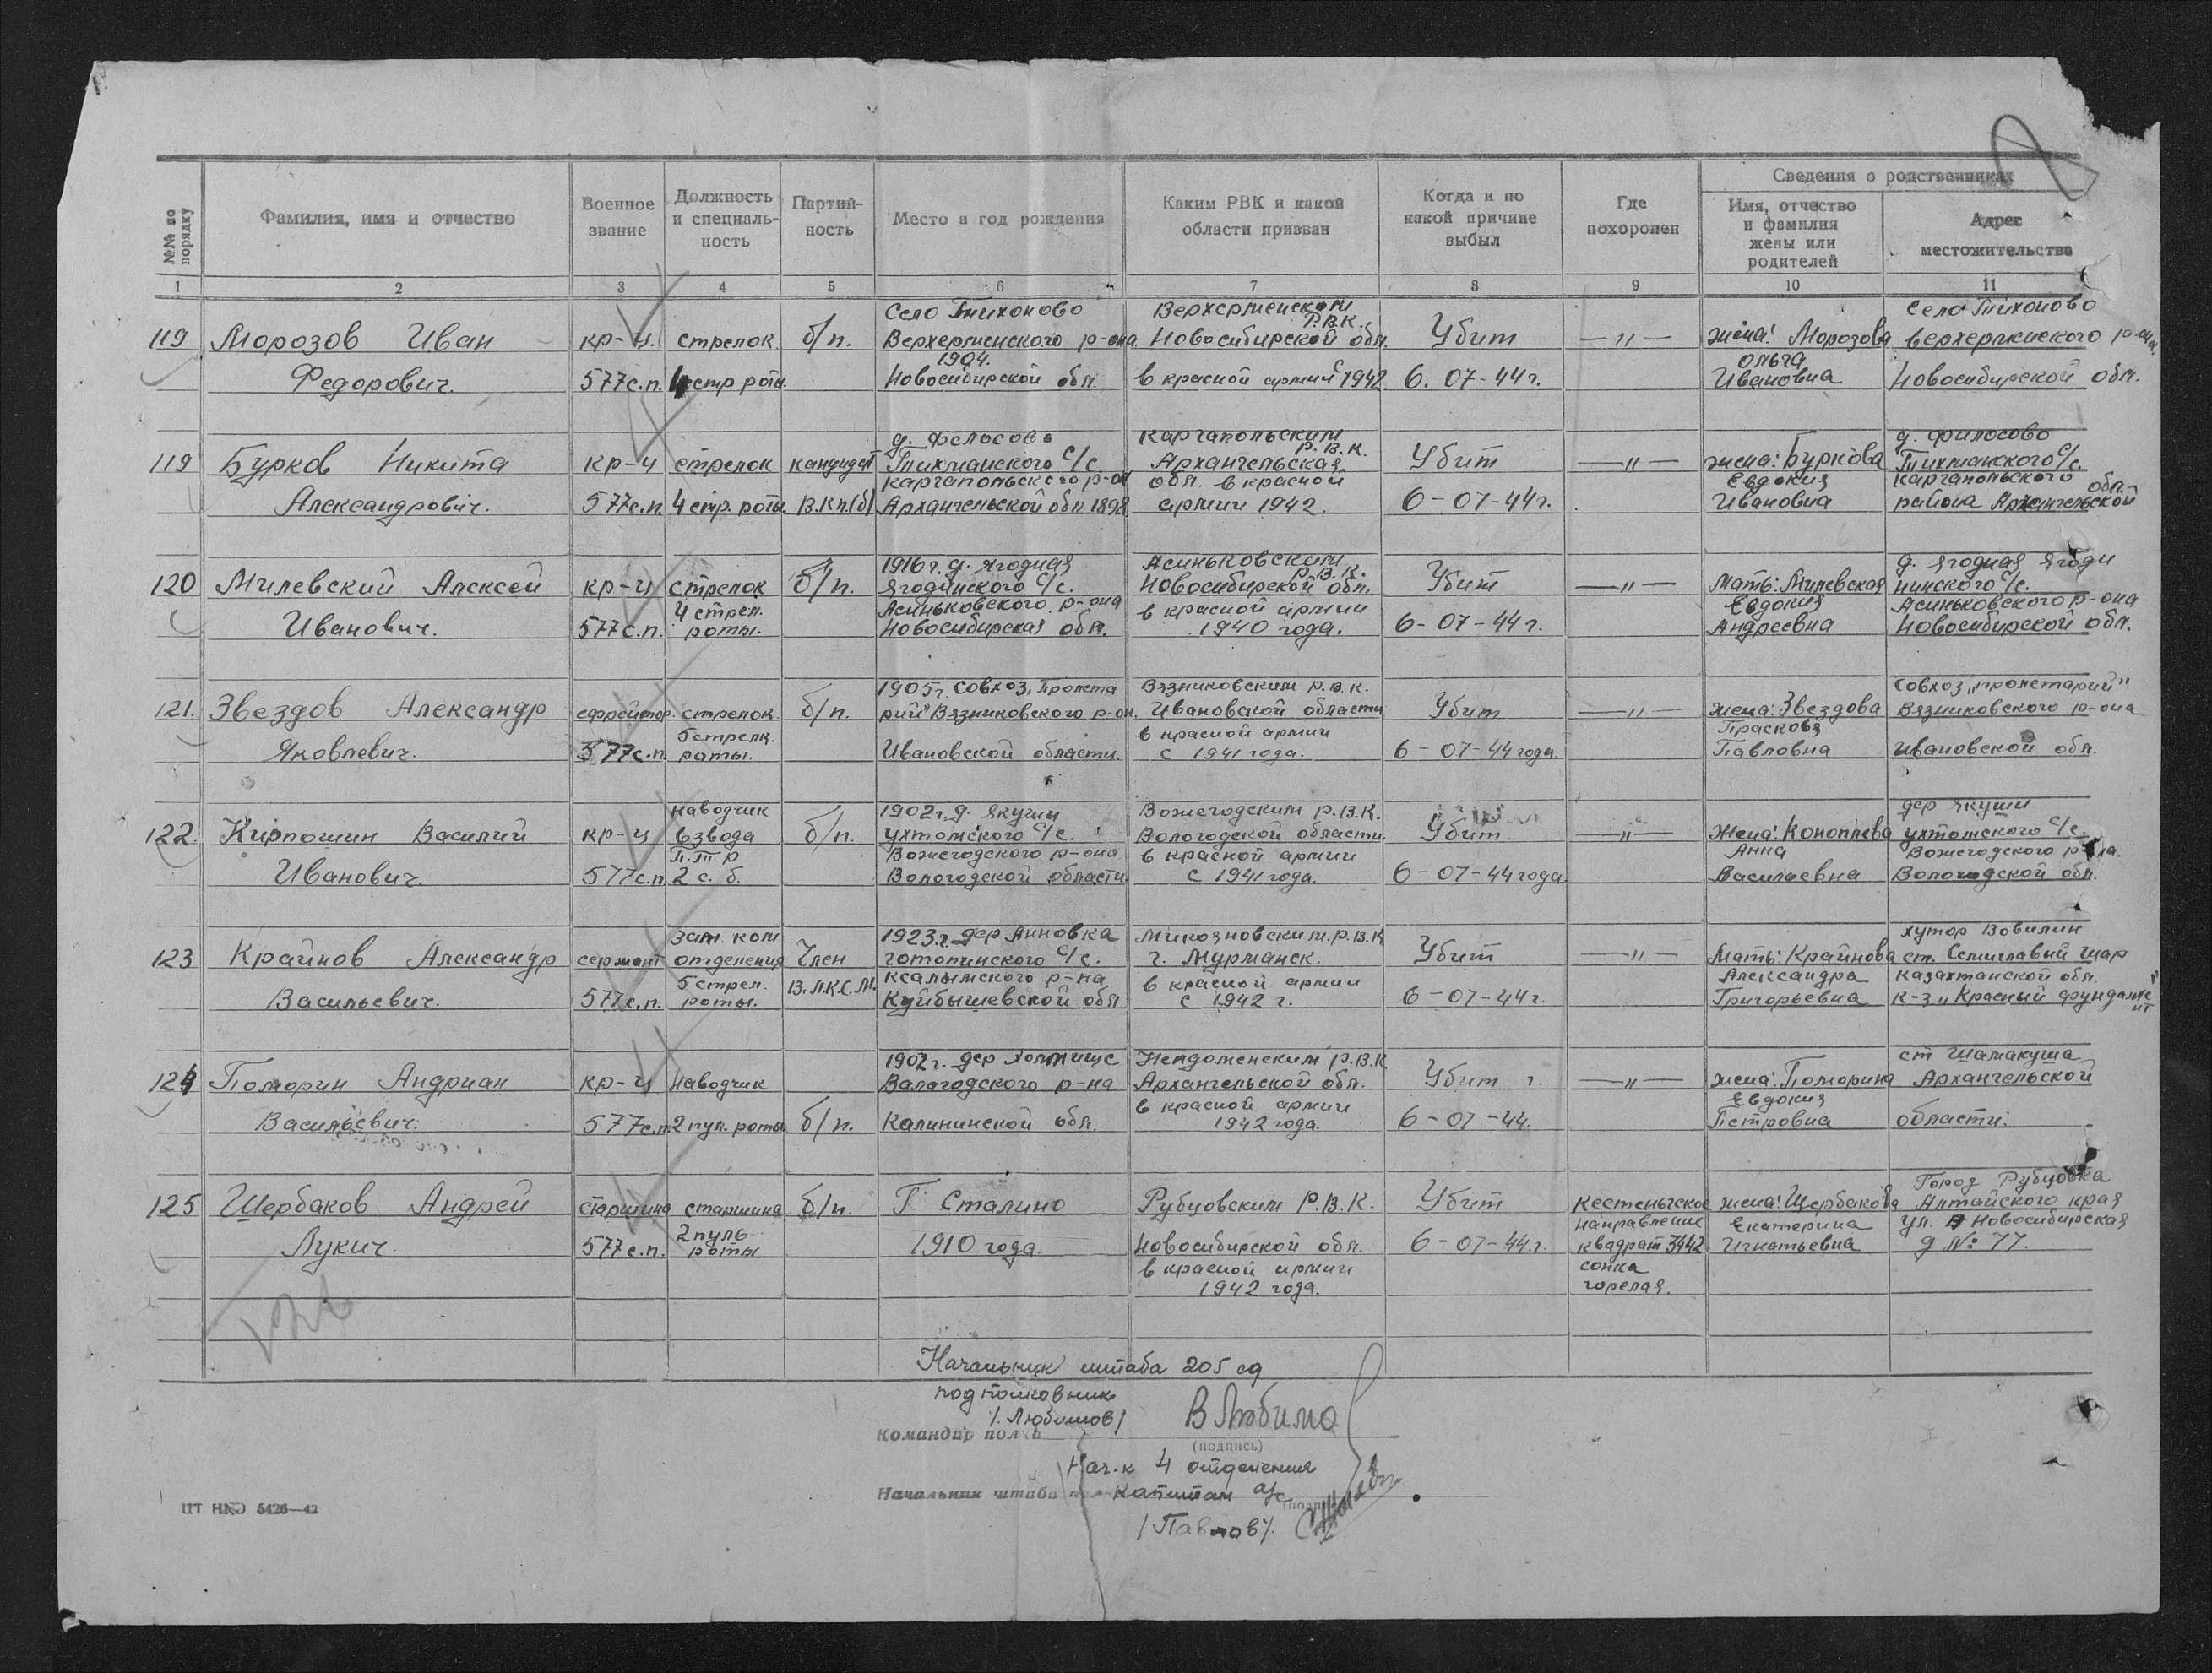 №№ по порядку
Фамилия, имя и отчество
Военное звание
Должность и специаль- ность
Партий- ность
Место и год рождения
Каким РВК и какой области призван
Когда и по какой причине выбыл
Где похоронен
Сведения о родственниках
Имя, отчество и фамилия жены или родителей
Адрес местожительства
1 2 3 4 5 6 7 8 9 10 11
Село Тихоново Верхерменском Село Тихоново
Р.В.К.
119 Морозов Иван кр-ц. стрелок. б/п. Верхерменского р-она. Новосибирской обл. Убит —"— жена: Морозова верхерменского р-она.
1904. ольга
Федорович. 577с.п. 4 стр роты. Новосибирской обл. в красной армии с 1942 6. 07-44г. Ивановна Новосибирской обл.
д. Фелосово Каргапольским д. филосово
Р.В.К.
119 Бурков Никита кр-ц стрелок кандидат Тихманского с/с. Архангельская Убит —"— жена: Буркова Тихманского с/с.
каргапольского р-он обл. в красной Евдокия каргапольского
обл.
Александрович. 577с.п. 4 стр. роты. В.К.п.(б) Архангельской обл 1898 армии 1942. 6-07-44г. Ивановна района Архангельской
1916г. д. Ягодная Асиньковским д. Ягодная Ягоди
Р.В.К.
120 Милевский Алексей кр-ц стрелок б/п. Ягодинского с/с. Новосибирской обл. Убит —"— Мать: Милевская нинского с/с.
4 стрел. Асиньковского р-она в красной армии Евдокия Асиньковского р-она
Иванович. 577с.п. роты. Новосибирская обл. 1940 года. 6-07-44г. Андреевна Новосибирской обл.
1905г. Совхоз, Пролета Вязниковским р.в.к. совхоз „пролетарий"
121. Звездов Александр ефрейтор. стрелок. б/п. рий" Вязниковского р-он. Ивановской области Убит —"— жена: Звездова Вязниковского р-она
5 стрелк. в красной армии Прасковя
Яковлевич. 577с.п. роты. Ивановской области. с 1941 года. 6-07-44 года. Павловна Ивановской обл.
наводчик 1902г. д. Якуши Вожегодским р.В.К. дер якуши
122. Кирпошин Василий кр-ц взвода б/п. ухтомского с/с. Вологодской области. Убит —"— Жена: Коноплева ухтомского с/с.
П.Т.Р Вожегодского р-она в красной армии Анна Вожегодского р-на.
Иванович. 577с.п 2 с. б. Вологодской области. с 1941 года. 6-07-44 года Васильевна Вологодской обл.
Зам. ком 1923г. дер Анновка Микояновским. р.В.К хутор Вовилин
123 Крайнов Александр сержант отделения Член готопинского с/с. г. Мурманск. Убит —"— Мать: Крайнова ст. Семиглавый Мар
5 стрел. ксалымского р-на в красной армии Александра Казахтанской обл.
Васильевич. 577с.п. роты. В.Л.К.С.М. Куйбышевской обл с 1942 г. 6-07-44г. Григорьевна к-з „Красный фундаме
нт"
1902г. дер холмище Няндоменским р.В.К ст Шалакуша
124 Поморин Андриан кр-ц наводчик Валагодского р-на Архангельской обл. Убит г. —"— жена: Поморина Архангельской
в красной армии Евдокия
Васильевич. 577с.п. 2 пул. роты б/п. Калининской обл. 1942 года. 6-07-44. Петровна области.
Город Рубцовка
125 Щербаков Андрей старшина старшина б/п. Г Сталино Рубцовским Р.В.К. Убит Кестеньгское жена: Щербакова Алтайского края
2 пуль направление Екатерина ул. Новосибирская
Лукич. 577с.п. роты 1910 года Новосибирской обл. 6-07-44.г. квадрат 3442 Игнатьевна д № 77.
в красной армии сопка
1942 года. горелая.
Начальник штаба 205 сд
подполковник
/. Любимов/ В Любимо
Командир полка
(подпись)
Нач.к 4 отделения
Начальник штаба капитан а/с
/Павлов/.
ЦТ НКО 5426—42